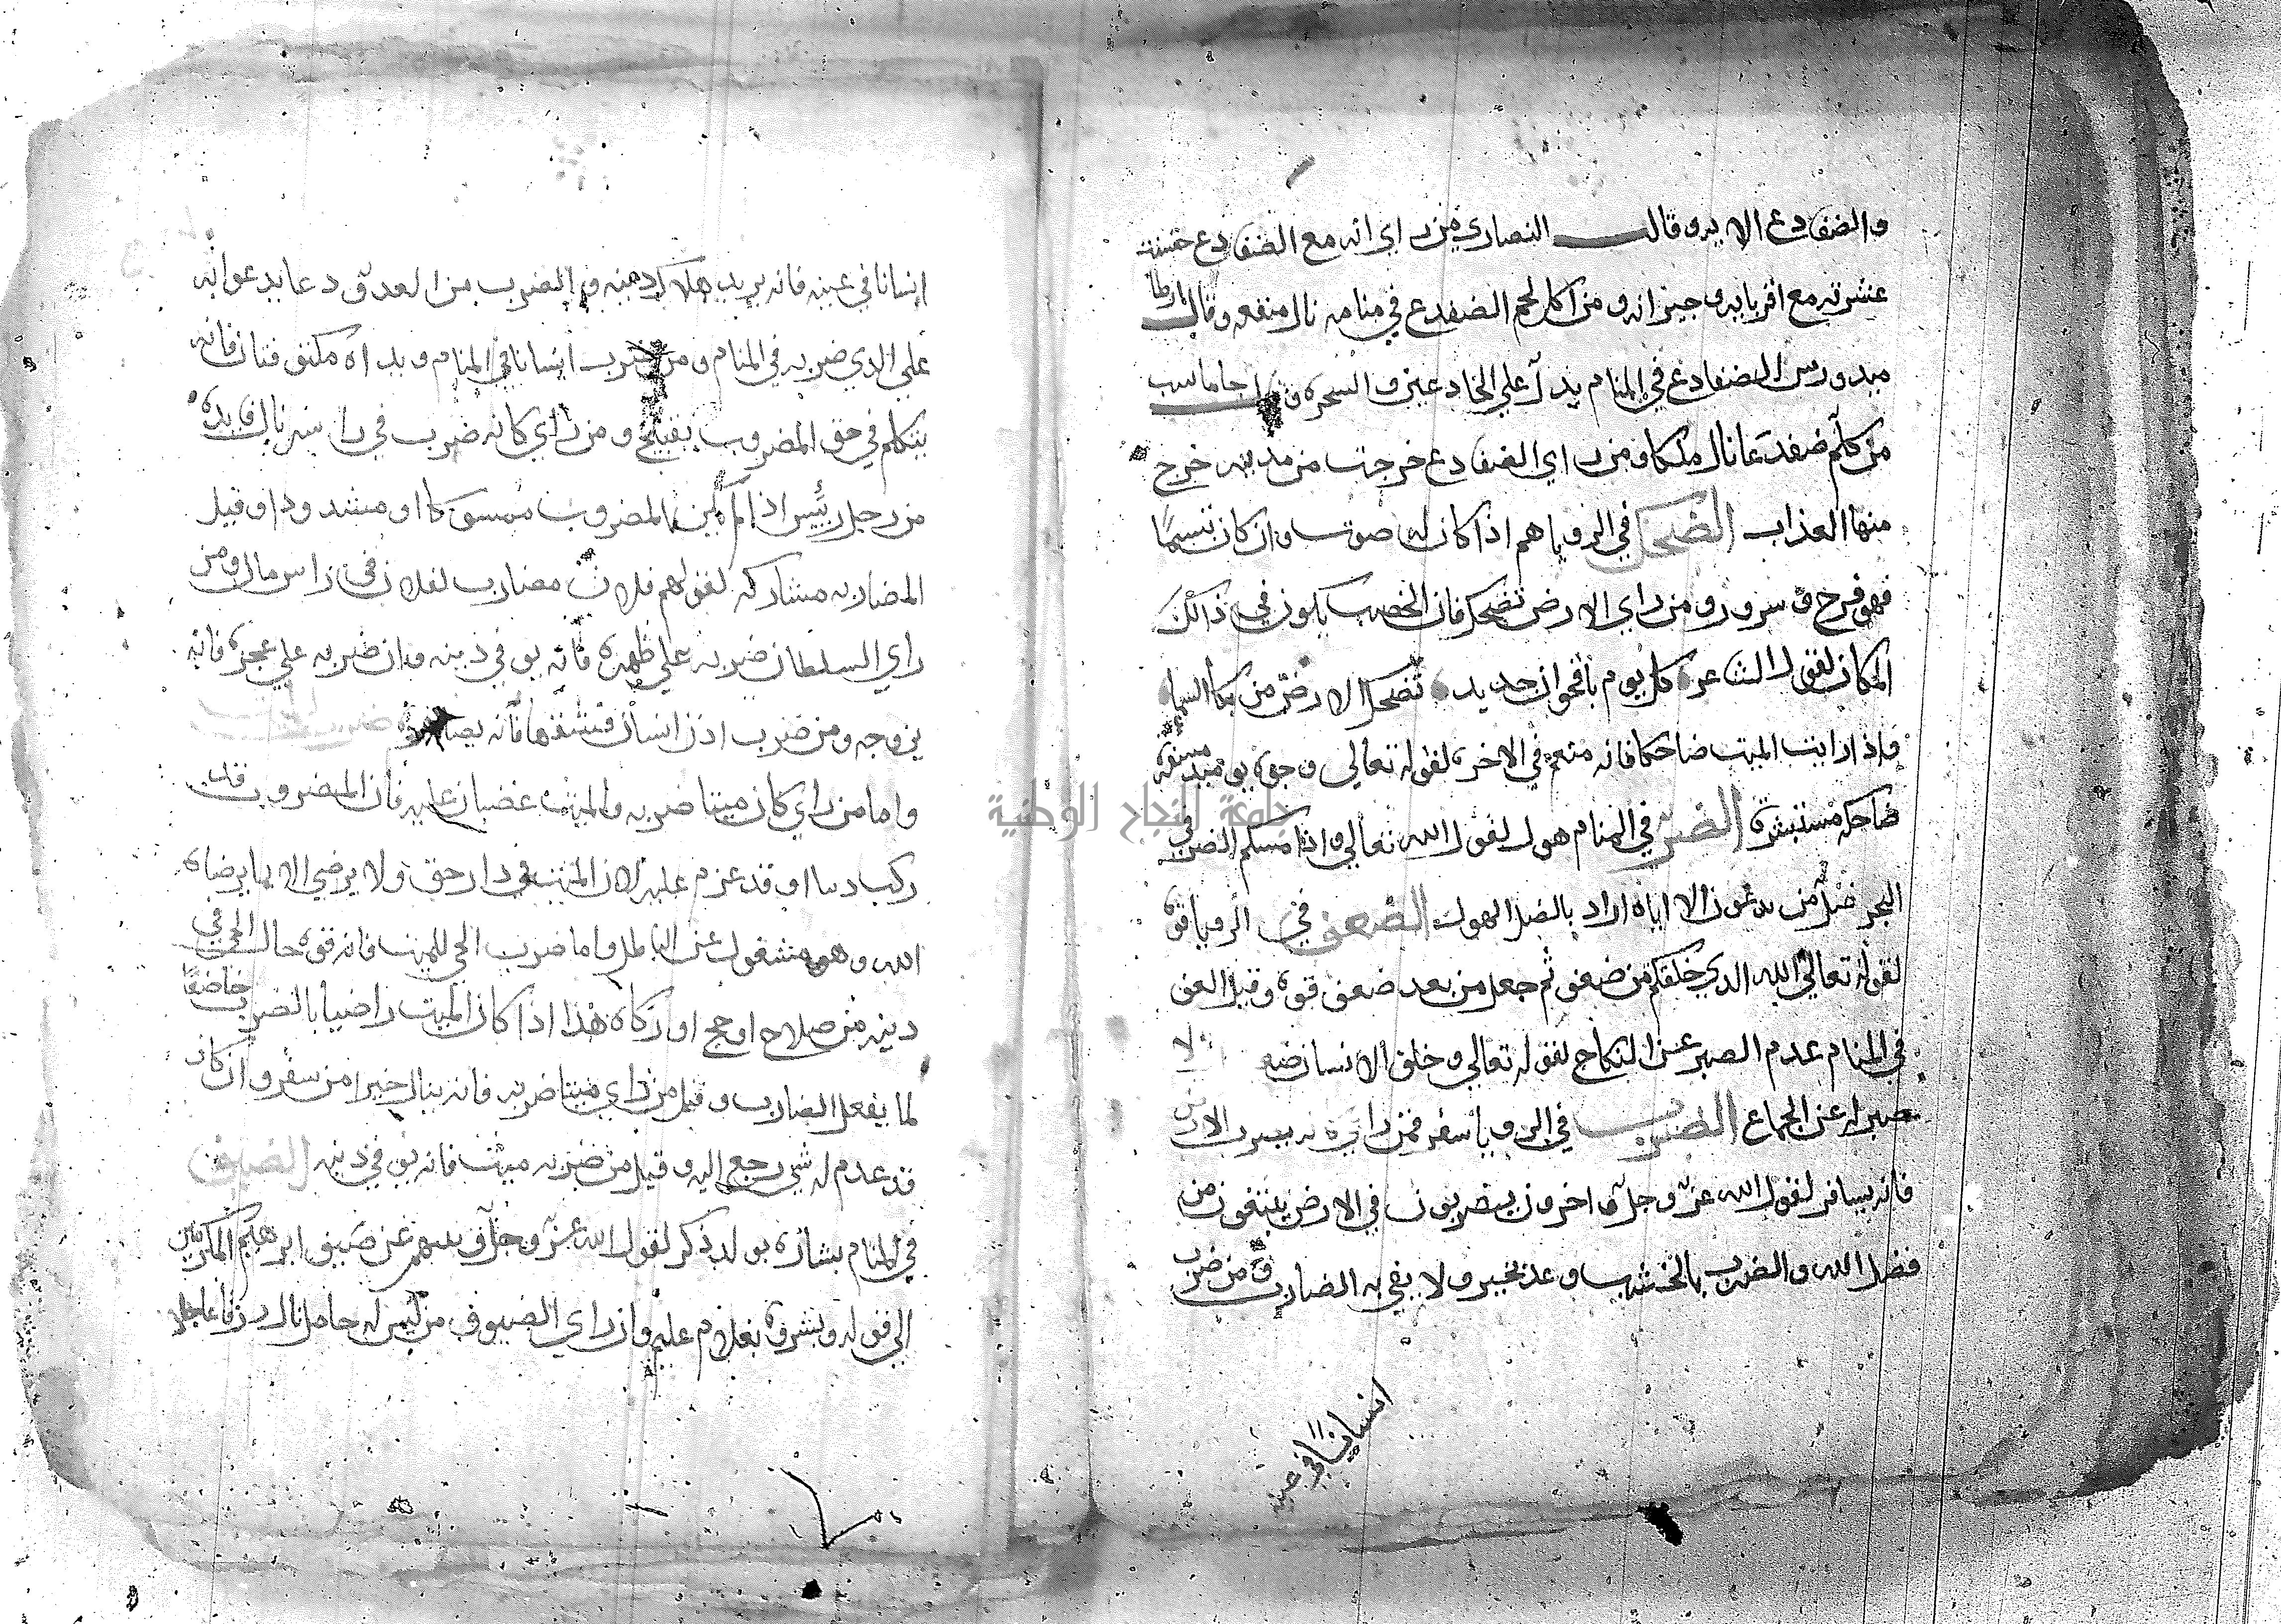 والضفادع الا يرو قالت النصاري من راي انه مع الضفادع حسنت
عشرته مع اقربايه و جيرانه و من اكل لحم الضفدع في منامه نال منفعه وقال ارطا
ميدورس الضفادع في المنام يدل علي الخادعين والسحره و جاماسب
من كلم ضفدعا نال ملكا و من راي الضفادع خرجت من مدينه خرج
منها العذاب الضحك في الرويا هم اذا كان له صوت وان كان تبسما
فهو فرح و سرور و من راي الارض تضحك فان الخصب يكون في ذالك
المكان لقول الشاعر كل يوم باقحوان جديد تضحك الارض من بكا السماء
واذا رايت الميت ضاحكا فانه منعم في الاخره لقوله تعالي وجوه يوميد مسفره
ضاحكه مستبشره الضر في المنام هول لقول الله تعالي واذا مسكم الضر في
البحر ضل من يدعون الا اياه اراد بالضر الهول الضعف في الرويا قوه
لقوله تعالي الله الدي خلقكم من ضعف ثم جعل من بعد ضعف قوه وقيل الضعف
في المنام عدم الصبر عن النكاح لقوله تعالي و خلق الانسان ضعـ لا
صبر له عن الجماع الضرب في الرويا سفر فمن راي انه يضرب الارض
فانه يسافر لقول الله عز و جل و اخرون يضربون في الارض يبتغون من
فضل الله والضرب بالخشب وعد بخير ولا يفي به الضارب و من ضرب
انسانا في عينه
انسانا في عينه فانه يريد هلاك دينه و الضرب من العدو دعا يدعوا به
علي الدي ضربه في المنام و من ضرب انسانا في المنام و يداه مكتوفتان فانه
يتكلم في حق المضروب بقبيح و من راي كانه ضرب في راسه نال فايده
من رجل رئيس اذا لم يكن المضروب ممسوكا او مشدودا و قيل
المضاربه مشاركه لقولهم فلان مضارب لفلان في راس مال و من
راي السلطان ضربه علي ظهره فانه يوفي دينه و ان ضربه علي عجزه فانه
يزوجه و من ضرب اذن انسان فشقها فانه
واما من راي كان ميتا ضربه والميت غضبان عليه فان المضروب قد
ركب دينا او قد عزم عليه لان الميت في دار حق ولا يرضي الا بما يرضاه
الله و هو مشغول عن الباطل و اما ضرب الحي للميت فانه قوه حال الحي في
دينه من صلاح او حج او زكاه هذا اذا كان الميت راضيا بالضرب خاضعا
لما يفعل الضارب و قيل من راي ميتا ضربه فانه ينال خيرا من سفر و ان كان
قد عدم له شي رجع اليه و قيل من ضربه ميت فانه يوفي دينه الضيف
في المنام بشاره بولد ذكر لقول الله عز و جل و نبيهم عن ضيف ابرهيم المكرمين
الي قوله و بشروه بغلام عليم و ان راي الضيوف من ليس له حامل نال رزقا عاجلا
جامعة النجاح الوطنية